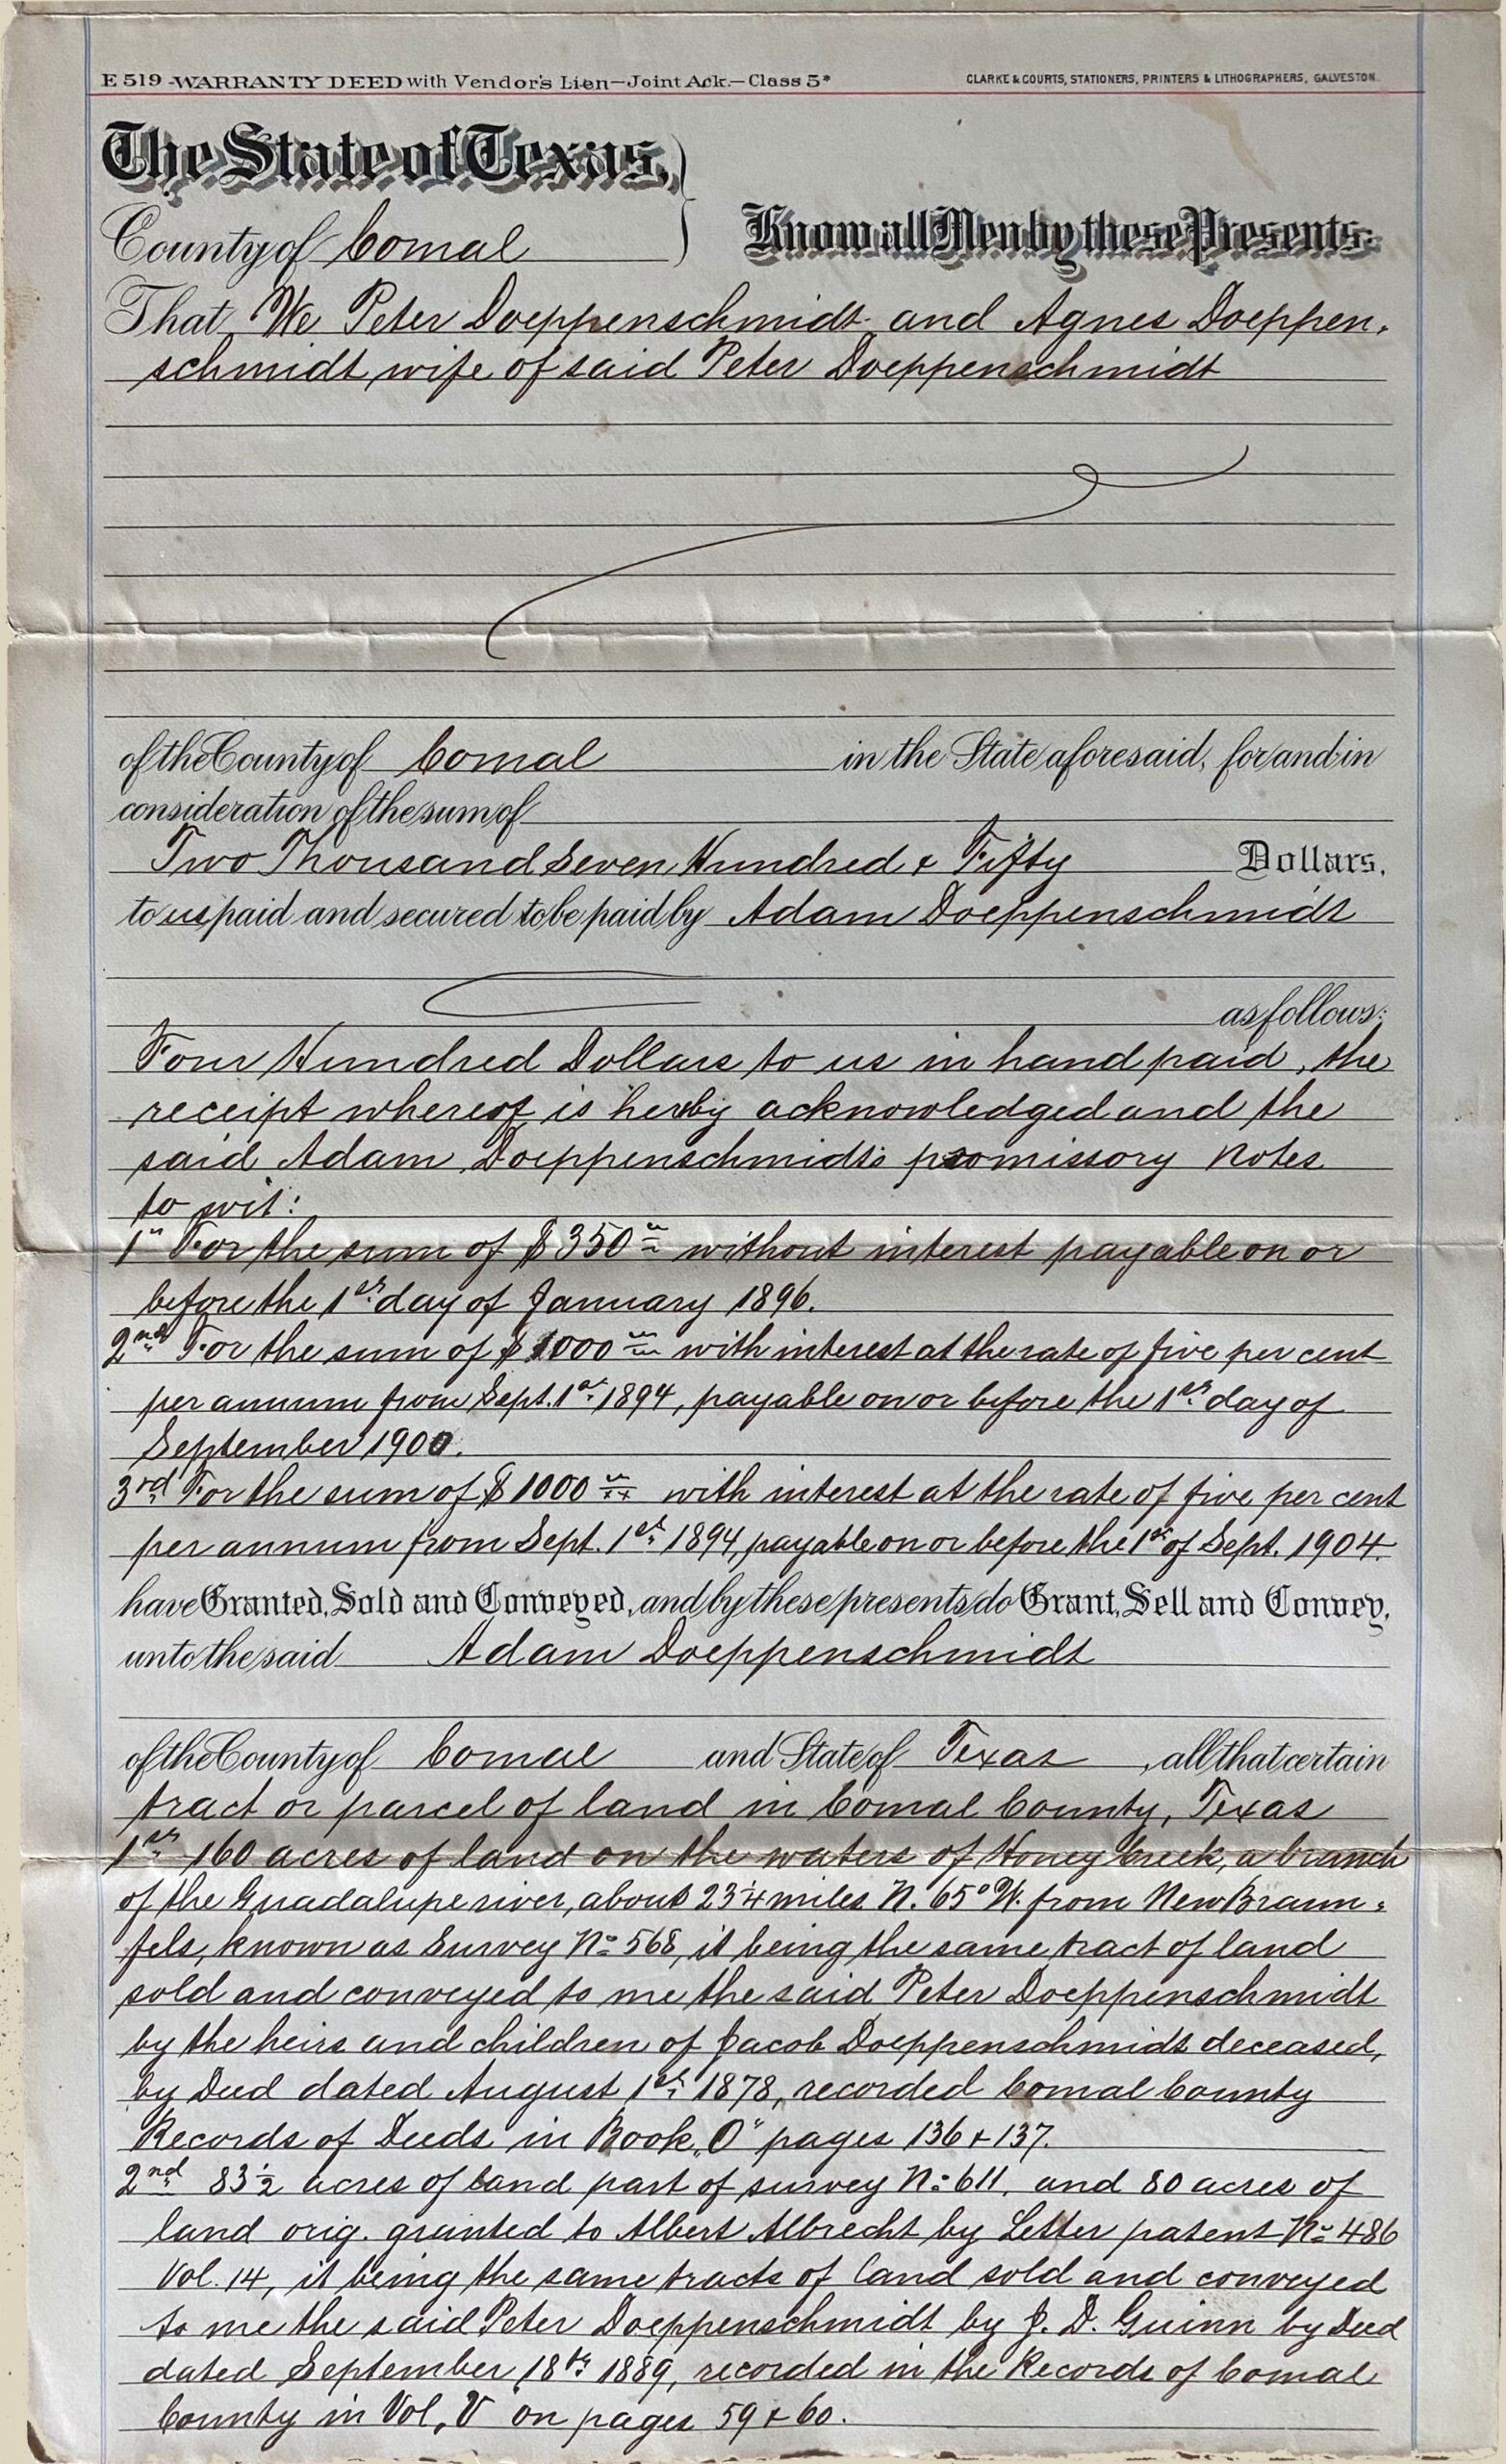 E 519 -WARRANTY DEED with Vendor's Lien—Joint Ack.—Class 5* CLARKE & COURTS, STATIONERS, PRINTERS & LITHOGRAPHERS, GALVESTON.
The State of Texas,
County of Comal Know all Men by these Presents:
That We Peter Doeppenschmidt and Agnes Doeppen-
schmidt wife of said Peter Doeppenschmidt
of the County of Comal in the State aforesaid, for and in
consideration of the sum of
Two Thousand Seven Hundred & Fifty Dollars,
to us paid and secured to be paid by Adam Doeppenschmidt
as follows:
Four Hundred Dollars to us in hand paid, the
receipt whereof is herby acknowledged and the
said Adam Doeppenschmidt's promissory notes
to wit:
1st For the sum of $350 without interest payable on or
before the 1st day of January 1896.
2nd For the sum of $1000 with interest at the rate of five per cent
per annum from Sept. 1st 1894, payable on or before the 1st day of
September 1900.
3rd For the sum of $1000 xx with interest at the rate of five per cent
per annum from Sept. 1st 1894, payable on or before the 1st of Sept. 1904.
have Granted, Sold and Conveyed, and by these presents do Grant, Sell and Convey,
unto the said Adam Doeppenschmidt
of the County of Comal and State of Texas, all that certain
tract or parcel of land in Comal County, Texas
1st 160 acres of land on the waters of Honey Creek, a branch
of the Guadalupe river, about 23 1/4 miles N. 65° W. from New Braun-
fels, known as Survey No 568, it being the same tract of land
sold and conveyed to me the said Peter Doeppenschmidt
by the heirs and children of Jacob Doeppenschmidt deceased,
by Deed dated August 1st 1878, recorded Comal County
Records of Deeds in Book „O" pages 136 & 137.
2nd 83 1/2 acres of land part of survey No 611, and 80 acres of
land orig. granted to Albert Albrecht by Letter patent No 486
Vol. 14, it being the same tracts of land sold and conveyed
to me the said Peter Doeppenschmidt by J. D. Guinn by Deed
dated September 18th 1889, recorded in the Records of Comal
County in Vol. V on pages 59 & 60.